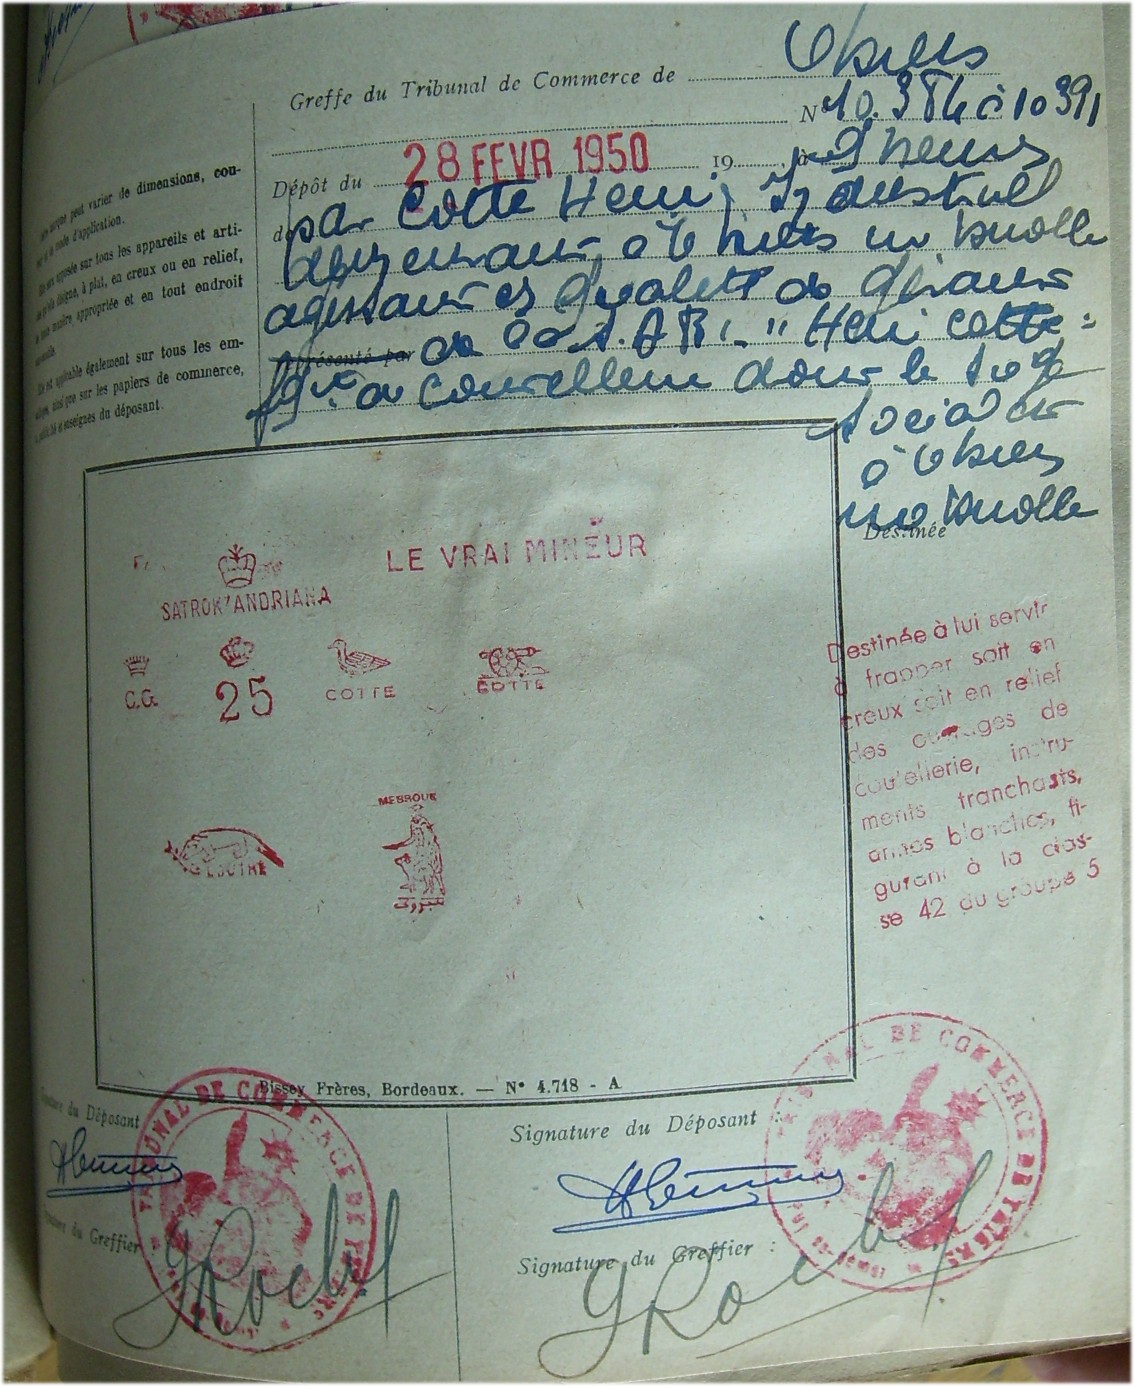 Greffe du Tribunal de Commerce de Thiers
N° 10.384 à 10391
Dépôt du 28 FEVR 1950 19 à 9 heures
par Cotte Henri, Industriel
demeurant à Thiers
agissant en qualité de gérant
représenté par de la S.A.R.L. "Henri Cotte"
de dont le siège
social est
à Thiers
Destinée
peut varier de dimensions, cou-
mode d'application.
sur tous les appareils et arti-
désigne, à plat, en creux ou en relief,
manière appropriée et en tout endroit
également sur tous les em-
que sur les papiers de commerce,
et enseignes du déposant
SATROK'ANDRIANA
LE VRAI MINEUR
C.G.
25
COTTE
COTTE
LOUTRE
MEBROUK
مبروك
Destinée à lui servir
à frapper soit en
creux soit en relief
des ouvrages de
coutellerie, instru-
ments tranchants,
armes blanches, fi-
gurant à la clas-
se 42 du groupe 5
Bissey Frères, Bordeaux. — N° 4.718 - A
du Déposant
du Greffier
TRIBUNAL DE COMMERCE DE
Signature du Déposant :
Signature du Greffier :
TRIBUNAL DE COMMERCE DE THIERS